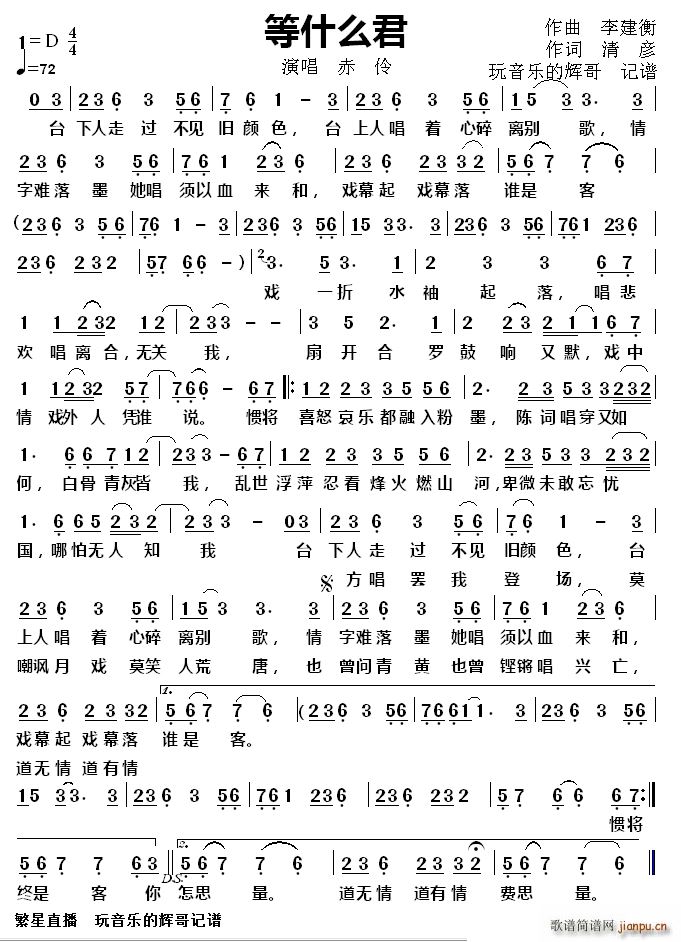 等什么君
1=D 4/4
作曲 李建衡
作词 清 彦
♩=72
演唱 赤 伶
玩音乐的辉哥 记谱
0 3 | 2 3 6 3 5 6 | 7 6 1 - 3 | 2 3 6 3 5 6 | 1 5 3 3 3· 3 |
台 下人走 过 不见 旧 颜 色，台 上人 唱 着 心碎 离别 歌，情
2 3 6 3 5 6 | 7 6 1 2 3 3 | 2 3 6 2 3 3 2 | 5 6 7 7 6 |
字难 落 墨 她唱 须以 血 来 和，戏幕起 戏幕落 谁是 客
( 2 3 6 3 5 6 | 7 6 1 - 3 | 2 3 6 3 5 6 | 1 5 3 3 3· 3 | 2 3 6 3 5 6 | 7 6 1 2 3 6
2 3 6 2 3 2 | 5 7 6 6 - ) | 2 3· 5 3· 1 | 2 3 3 6 7 |
戏 一折 水 袖 起 落，唱悲
1 1 2 3 2 1 2 | 2 3 3 - - | 3 5 2· 1 | 2 2 2 3 2 1 1 6 7 |
欢 唱 离合，无关 我， 扇 开 合 罗 鼓 响 又 默，戏中
1 1 2 3 2 5 7 | 7 6 6 - 6 7 ‖: 1 2 3 3 5 3 5 5 6 | 2· 2 3 5 3 2 3 2 |
情 戏外 人 凭谁 说。 惯将 喜怒 哀乐都融入粉 墨，陈词唱穿又如
1· 6 6 7 1 2 | 2 3 3 - 6 7 | 1 2 3 3 5 3 5 5 6 | 2· 2 3 5 3 3 2 3 2 |
何，白骨青灰皆 我，乱世浮萍 忍看 烽火燃山 河，卑微未敢忘忧
1· 6 6 5 2 3 2 | 2 3 3 - 0 3 | 2 3 6 3 5 6 | 7 6 1 - 3 |
国，哪怕无人 知 我 台 下人走 过 不见 旧颜 色，台
方唱罢 我 登 场，莫
2 3 6 3 5 6 | 1 5 3 3· 3 | 2 3 6 3 5 6 | 7 6 1 2 3 3 |
上人唱 着 心碎 离别 歌，情 字难落 墨 她唱 须以血 来和，
嘲讽月 戏 莫笑 人荒 唐，也 曾问青 黄 也曾 铿锵唱 兴亡，
2 3 6 2 3 3 2 | 1. 5 6 7 7 6 | ( 2 3 6 3 5 6 | 7 6 6 1 1· 3 | 2 3 6 3 5 6 |
戏幕起 戏幕落 谁是 客。
道无情 道有情
1 5 3 3 3· 3 | 2 3 6 3 5 6 | 7 6 1 2 3 6 | 2 3 6 2 3 2 | 5 7 6 6 6 7 :‖
惯将
5 6 7 7 6 3 | 2. 5 6 7 7 6 | 2 3 6 2 3 2 | 5 6 7 7 6 | 6 - - - ‖
D.S.
终是 客 你 怎思 量。 道无情 道有情 费思 量。
繁星直播 玩音乐的辉哥记谱
歌谱简谱网
jianpu.cn